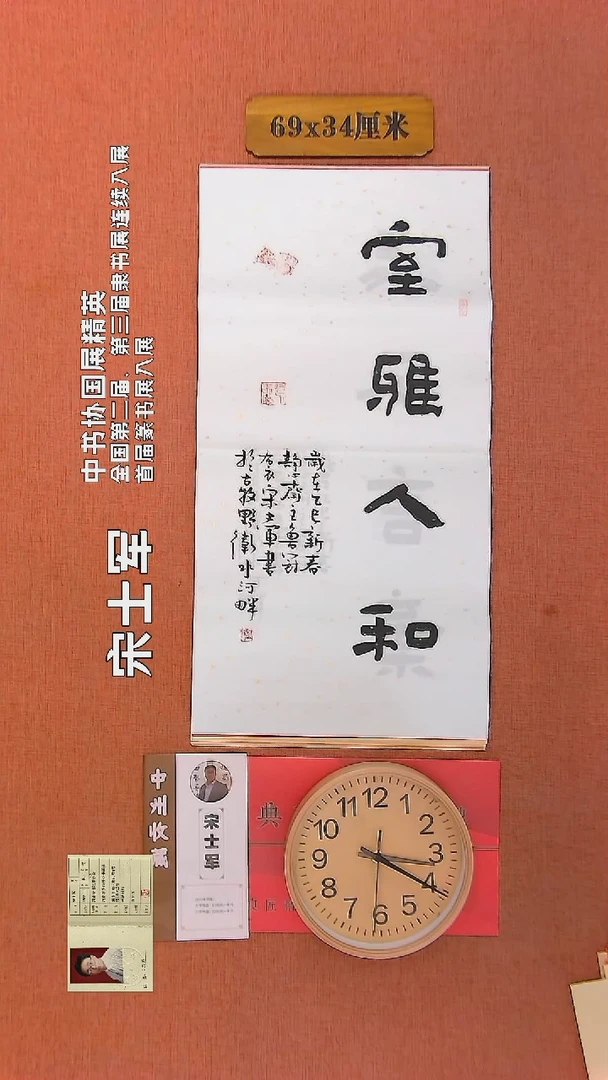 69x34厘米
室雅人和
歲在乙巳新春
靜
宋士軍書
於古牧野衛水河畔
中书协国展精英
全国第二届、第三届隶书展连续入展
首届篆书展入展
宋士军
宋士军
典
12
1
2
3
4
5
6
7
8
9
10
11